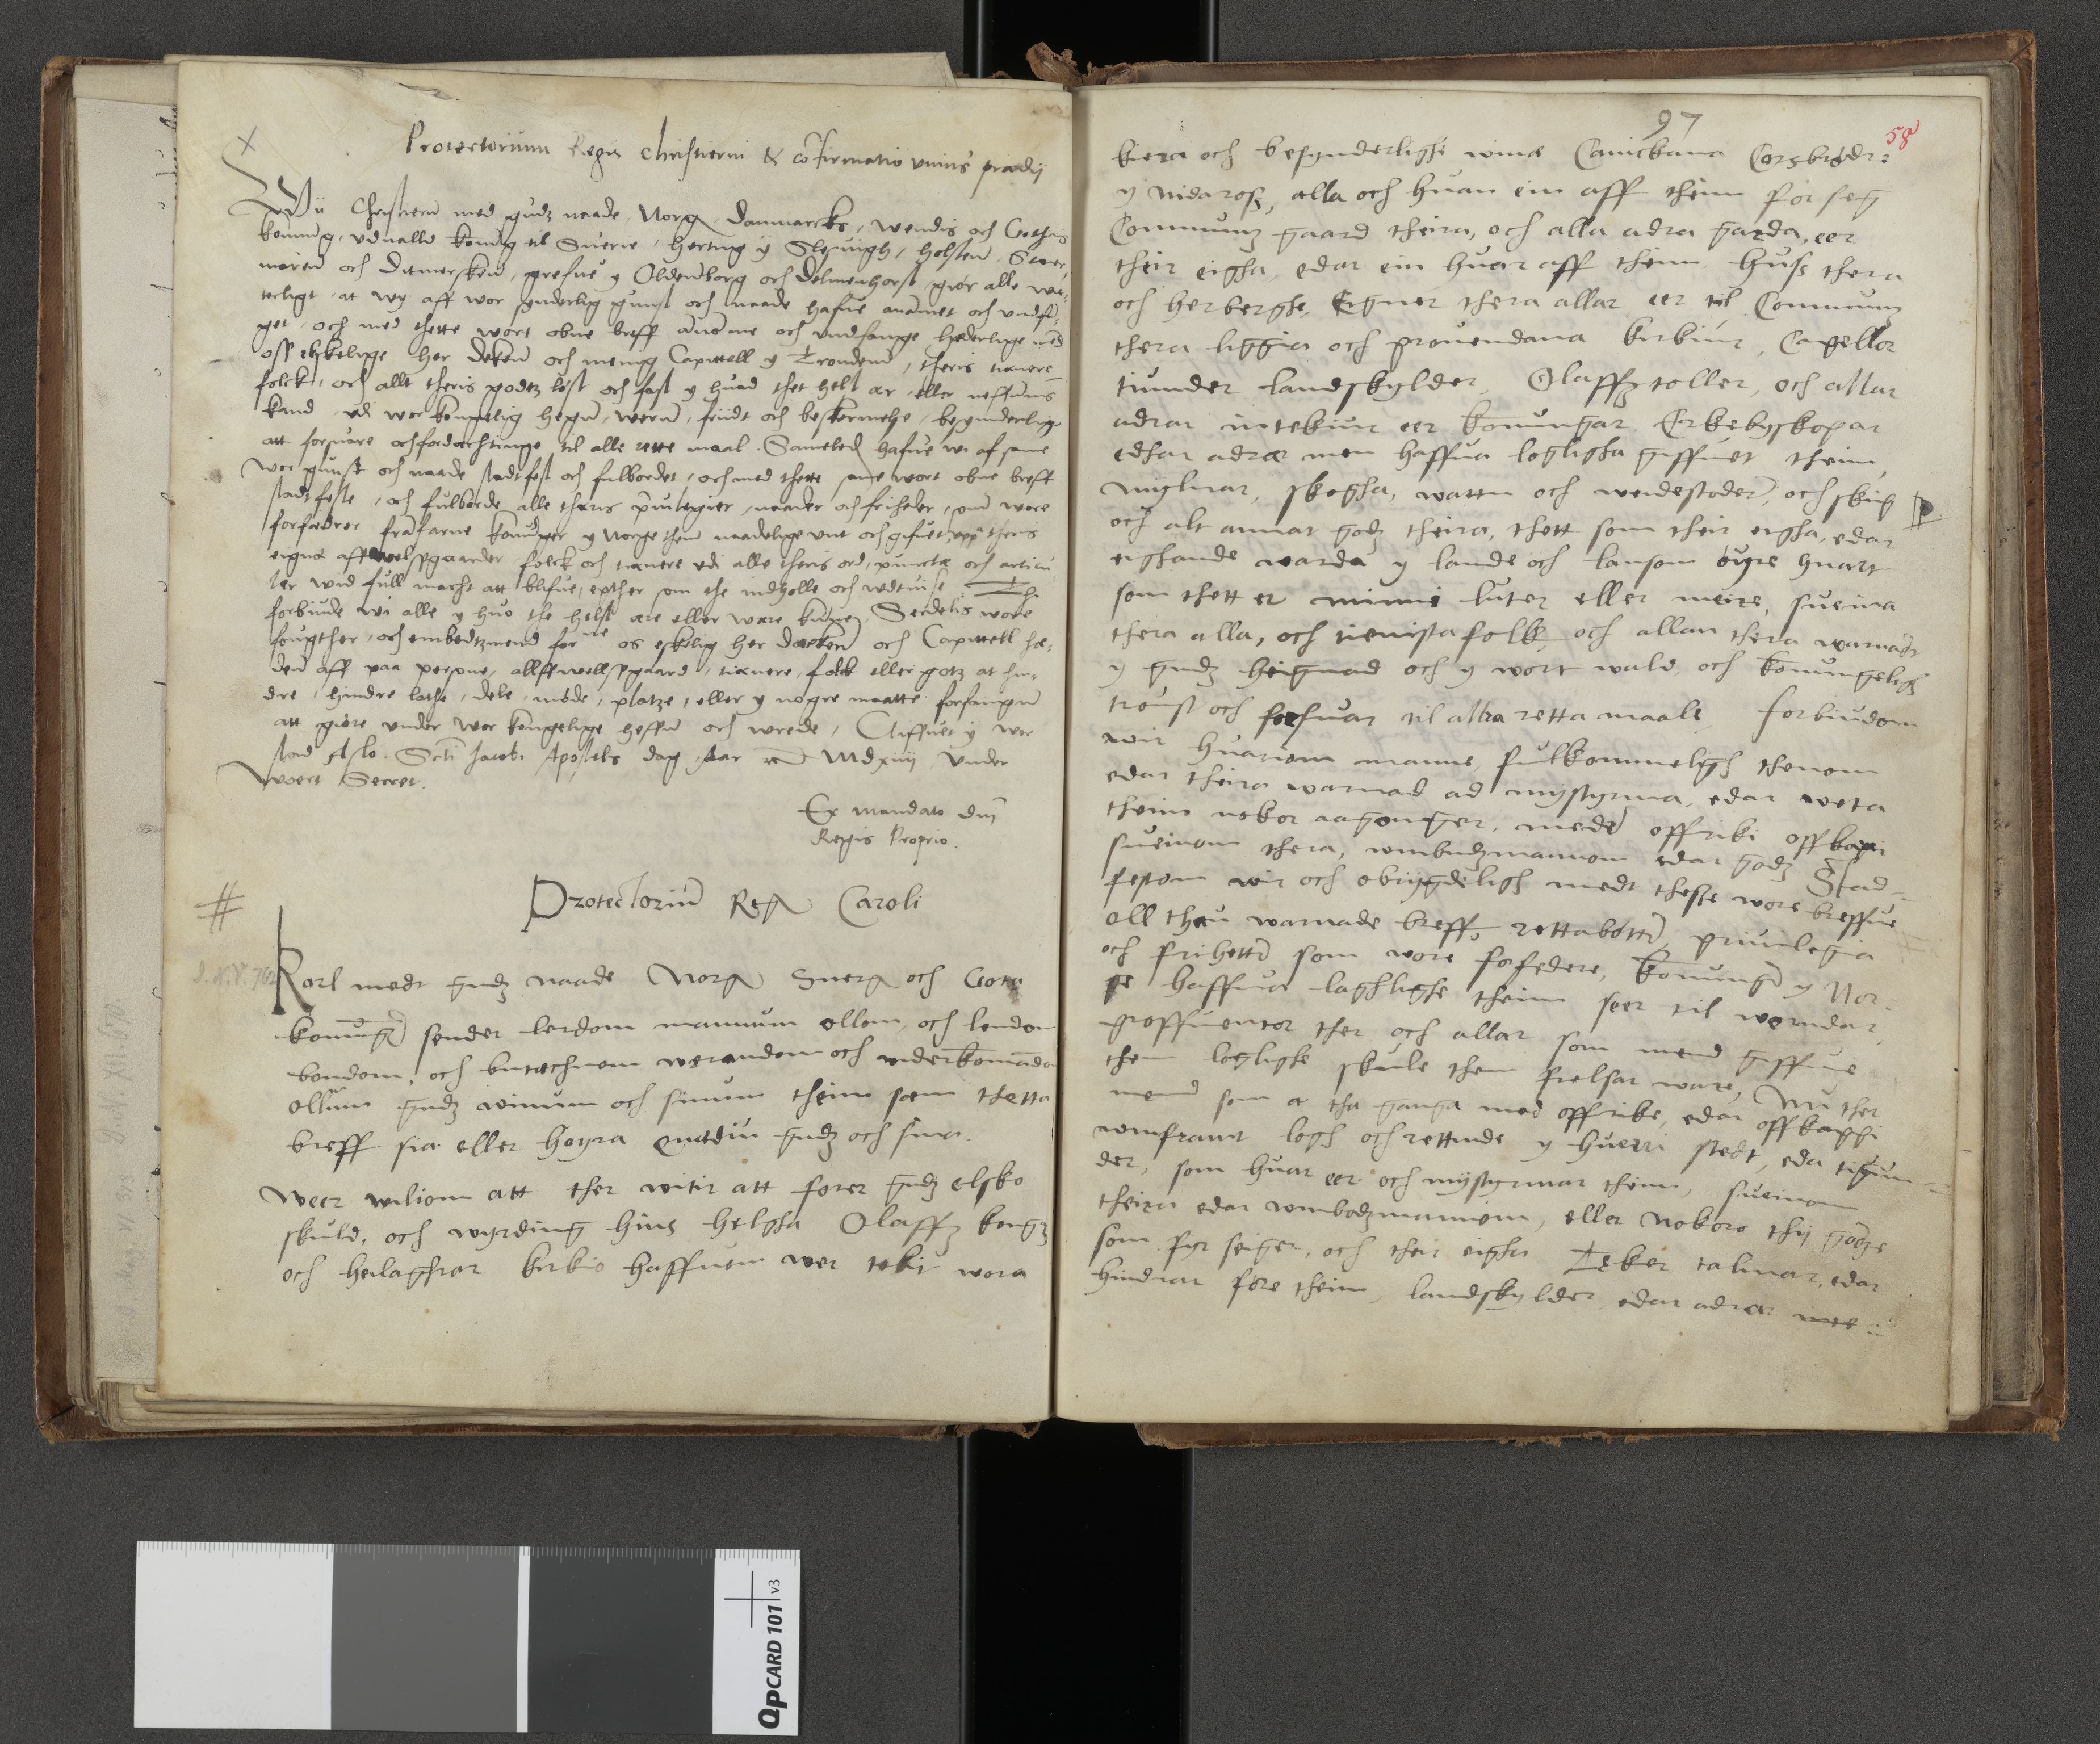 Protectorium Regis Christierni & cōfirmatio unius prædij
Wii Christiern med gudz naade, Norges, Danmarcks, Wendis och Gothis
konning, vduallu koning til Suerie, hertug y Slesuigh, holsten, Stor,
maren och Ditmersken, grefue y Oldenborg och Delmenhorst, giør alle wit,
terligt, at wy aff wor synderlig gunst och naade hafue anammet och undfā,
get, och med thette wort obne breff anāme och vndfange hæderlige med
oss elskelige her deken och menig Capittell y Trondem, theris tienere
folck, och allt theris godtz løst och fast y huad thet helst ær, eller neffnis
kand, vdi wor kongelig hegn, wern, friidt och beskermelse, besynderlige
att forsuare och fordachtinge til alle rette maal. Sameled hafue wi af same
wor gunst och naade stadfest och fulbordet, och med thette same wort obne breff
stadfeste, och fulborde alle theris priuilegier, naader och friheder, som wore
forfædrer framfarne konunger y Norge them naadelige unt och gifuet, upp theris
eigne aftwelsgaarder folck och tienere vdi alle theris ord, puncte och articu
ler wid full macht att blifue, epther som the indholle och vdtuise. Thi
forbiude wi alle y huo the helst ære eller wære kunne, Serdelis wore
fougther, och embedtzmend forne os elskelig her Deken och Capittell her,
den aff paa persone, allffwellssgaard, tienere, folck eller gotz at hin,
dre, hindre lathe, dele, møde, platze, eller y nogre maatte forfange
att giøre under wor kongelige heffn och wrede, Giffuet y wor
stad Aslo. Scti Jacobi Apostels dag Aar &c Mdxiiij Under
Woert Secret.
Ex mandato dni
Regis Proprio.
Protectoriū Regis Caroli
D. N. V. 762
Karl medt gudz naade Norges Suerges och Gote
konūger sender lerdom mannum ollom, och lendom
bondom, och butæchnom werandom och widerkomādom
ollum gudz winum och sinum theim som thetta
breff sia eller høyra quædiu gudz och sina.
Weer wiliom att ther witir att forer gudz elsko
skuld, och wyrding hins helgha Olaffz kongz
och heilaghrar kirkio haffuom wer tekit wora
97
58
kera och besynderlighe wina Canickana Corsbrødr:
y Nidaross, alla och huan ein aff theim for seg
Communz gaard theira, och alla adra garda, eer
their eigha, edar ein huar aff theim. huss thera
och herberghe. Eigner thera allar eer til Communz
thera liggia och prouendana kirkiur, Capellor
tiunder landskylder, Olaffztoller, och allar
adrar intekiur eer konungar Erkebyskopar
edhar adrar men haffua logligha giffuet theim,
mylnar, skogha, wattn och weidestoder, och skip
och alt annat godz theira, thett som their eigha, edar
eighande warda y lande och lansom øyre huart
som thett er minni luter eller meire, sueina
thera alla, och tienistafolk och allan thera warnadt
y gudz heignad och y wort wald och konungeligh
troust och forsuar til allra retta maale, forbiudom
wir huariom manne fulkommeligh thenom
edar theira warnad ad mystyrma, edar weta
theim nokor aagonger, meder offriki offkapi
sueinom thera, umbudzmannom edar godz Stad
festom wir och obrygdeligh medt theste wore breffue
oll then warnade breff, rettaboter, priuilegia
och friheter som wore forfedere, konunger y Nor
ge haffua laghlighe theim seer til werndar,
groffuentor ther och allar som mend giffue
them loglighe skule them frelsar ware, Nu ther
mend som a tha ganga med offrike, edar offkaghi
umframt logh och rettinde y huerri stedt, eda tigun
der, som huar eer och mystyrmar theim, sueinom
theira edar umbodzmannom, eller nokoro thij godze
som fyr seiger, och their eigha Teker talmar, edar
hindrar fore theim, landskylder edar adrar inte